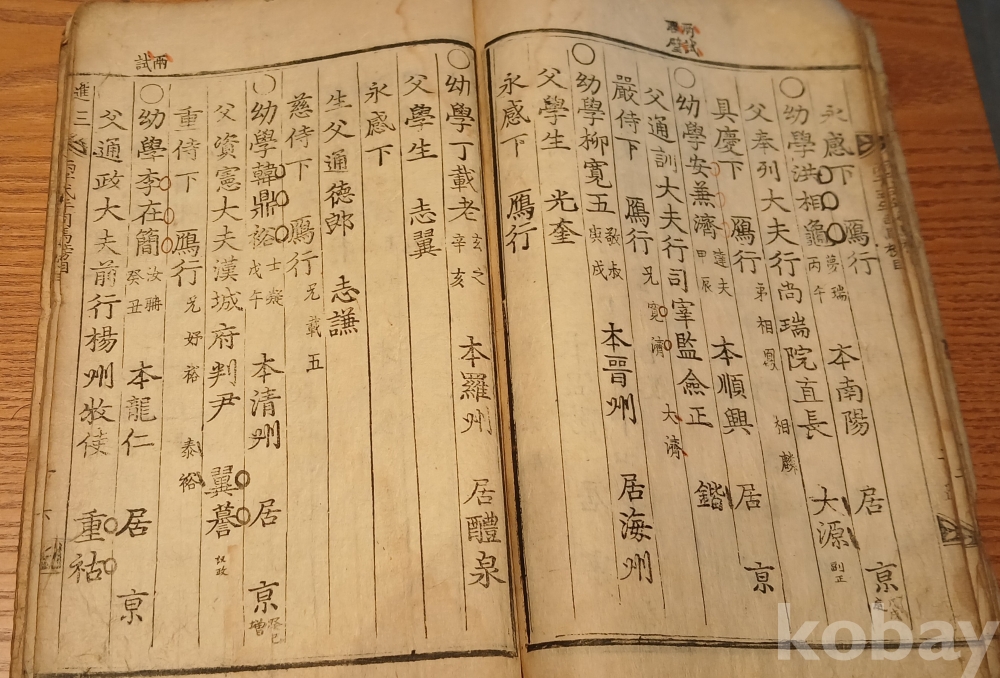 永感下 鴈行
幼學洪相龜 夢瑞 丙午 本南陽 居京
父奉列大夫行尚瑞院直長 大源
具慶下 鴈行 弟相 相麟
幼學安兼濟 達夫 甲辰 本順興 居京
父通訓大夫行司宰監僉正 鍇
嚴侍下 鴈行 兄寬濟 大濟
幼學柳寬五 敬叔 庚戌 本晉州 居海州
父學生 光奎
永感下 鴈行
幼學丁載老 辛亥 本羅州 居醴泉
父學生 志翼
永感下
生父通德郎 志謙
慈侍下 鴈行 兄載五
幼學韓鼎裕 士凝 戊午 本清州 居京
父資憲大夫漢城府判尹 翼謩
重侍下 鴈行 兄好裕 泰裕
幼學李在簡 癸丑 本龍仁 居京
父通政大夫前行楊州牧使 重祜
進三
兩試
kobay